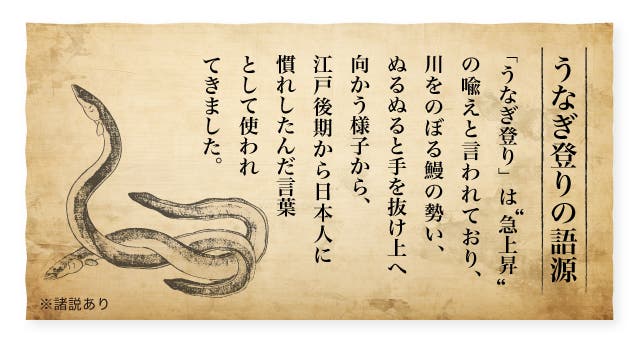 うなぎ登りの語源
「うなぎ登り」は“急上昇“
の喩えと言われており、
川をのぼる鰻の勢い、
ぬるぬると手を抜け上へ
向かう様子から、
江戸後期から日本人に
慣れしたんだ言葉
として使われ
てきました。
※諸説あり